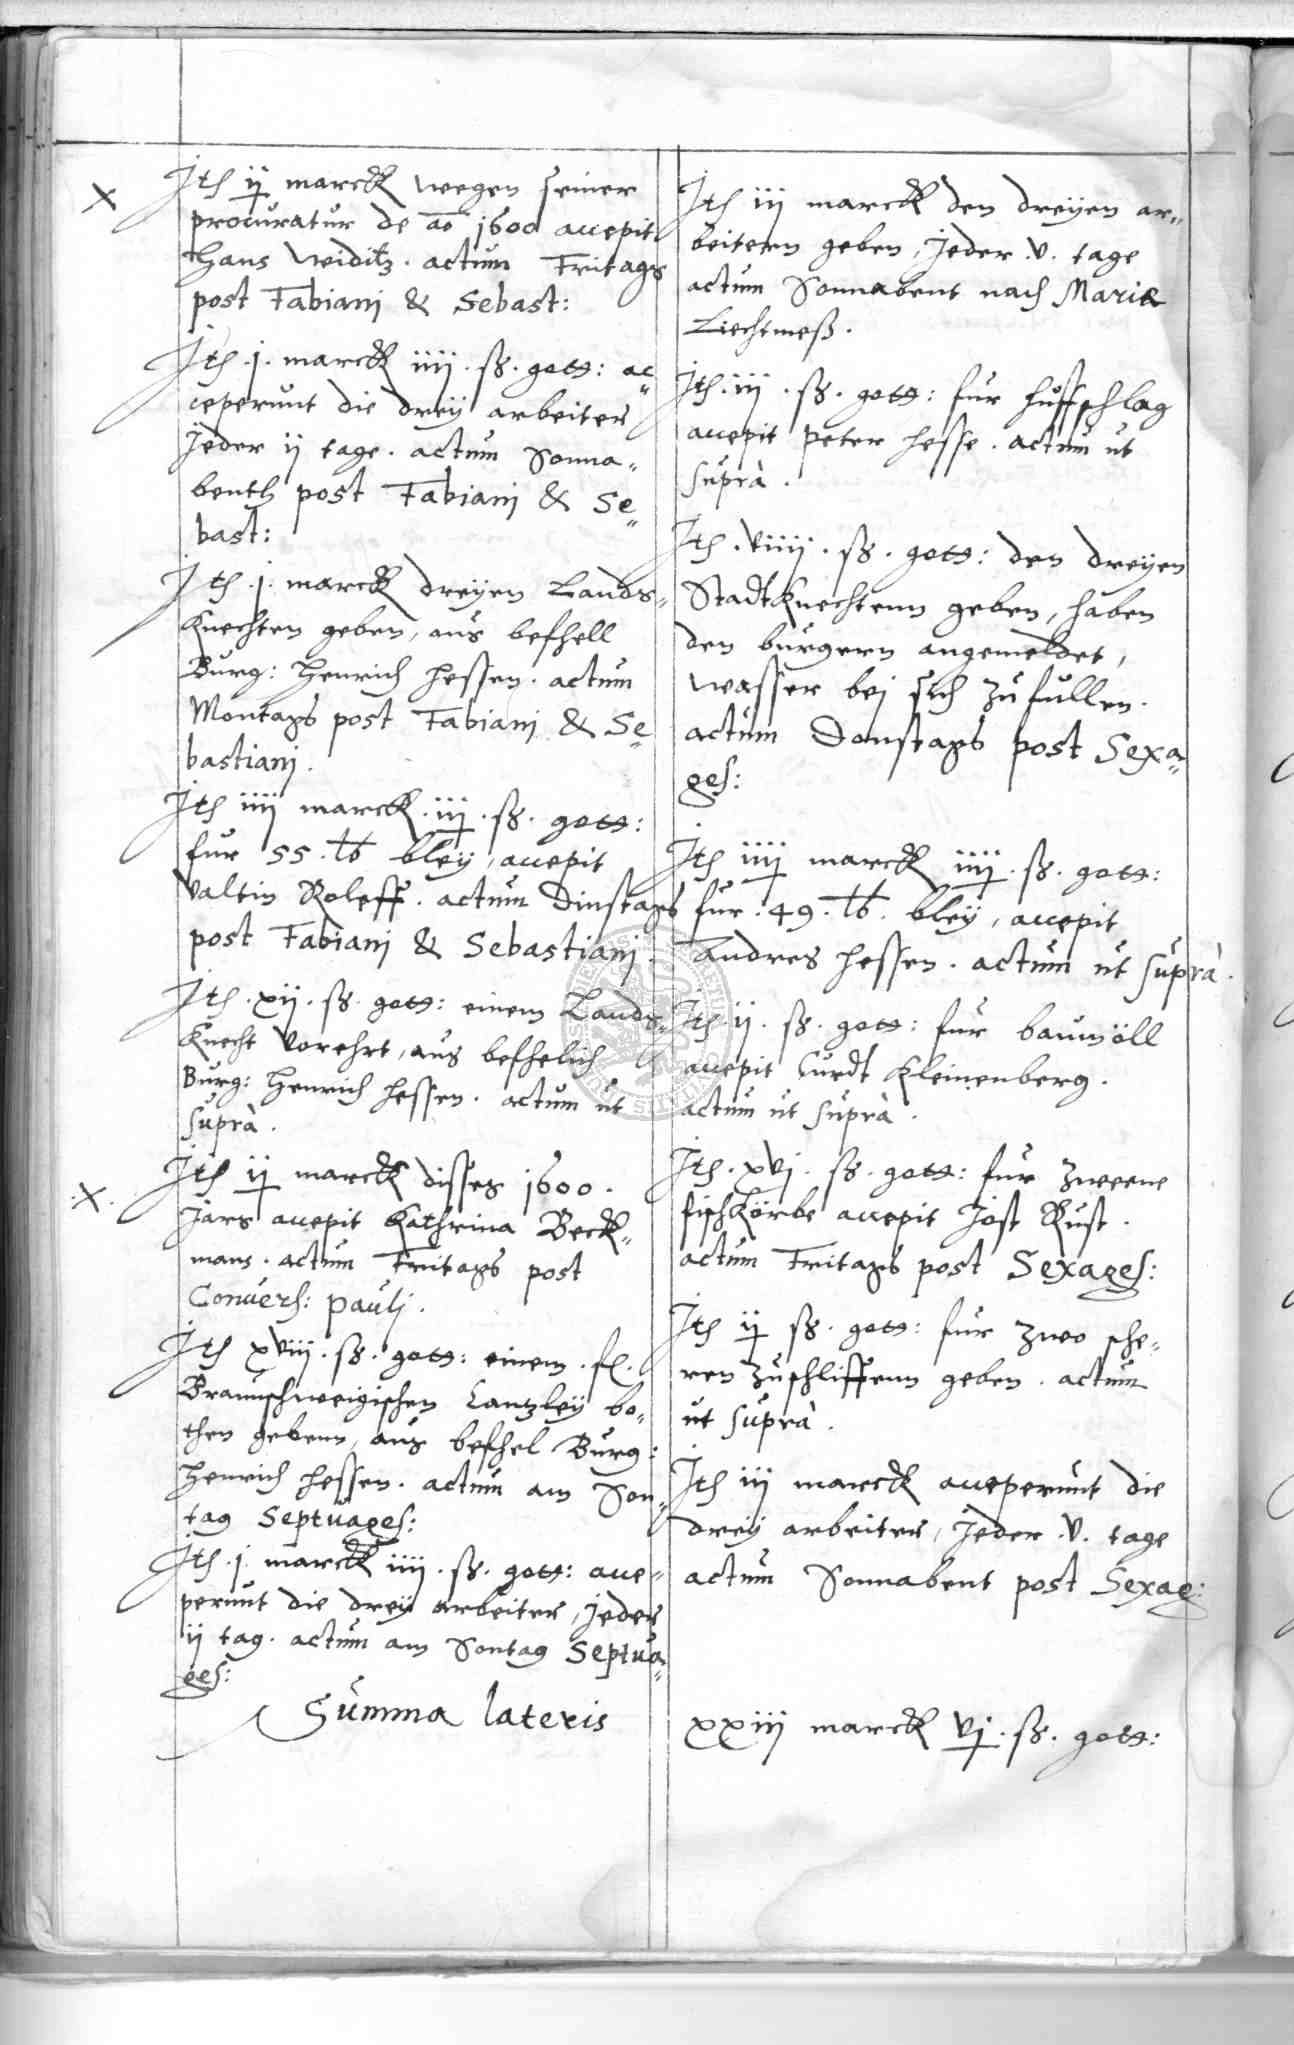 X
Jth ij marckk wegen seiner
procuratur de ao 1600 accepit
Hans Weiditz. actum Fritags
post Fabianj & Sebast:
Jth. j. marckk iiij. ß. gott: ac„
ceperunt die dreÿ arbeiter
Jeder ij tage. actum Sonna„
benth post Fabianj & Se„
bast:
Jth. j. marckk dreÿen Lands„
Knechten geben, aus befhell
Burg: Henrich Hessen. actum
Montags post Fabianj & Se„
bastianj.
Jth iiij marckk. iij. ß. gott:
fur 55. lb bleÿ, accepit
Valtin Roleff. actum Dinstags
post Fabianj & Sebastianj.
Jth. xij. ß. gott: einem Lands„
Knecht Vorehrt, aus befhelich
Burg: Henrich Hessen. actum ut
suprà.
.X.
Jth ij marckk disses 1600.
Jars accepit Kathrina Beckk„
mans. actum Fritags post
Convers: paulj.
Jth xviij. ß. gott: einem. fl.
Braunschweigischen Cantzleÿ bo„
then gebenn, aus befhel Burg:
Henrich Hessen. actum am Son„
tag Septuages:
Jth. j. marckk iiij. ß. gott: acce„
perunt die dreÿ arbeiter, Jeder
ij tag. actum am Sontag Septua„
ges:
Summa lateris
Jth iij marckk den dreÿen ar„
beitern geben, Jeder. v. tage
actum Sonnabent nach Mariæ
Liechtmeß.
Jth. iij. ß. gott: fur huffschlag
accepit Peter Hesse. actum ut
suprà.
Jth. viiij. ß. gott: den dreÿen
StadtKnechtenn geben, haben
den burgern angemeldet,
wasser bej sich zu fullen.
actum Donstags post Sexa„
ges:
Jth iiij marckk iiij. ß. gott:
fur. 49. lb. bleÿ, accepit
Andres Hessen. actum ut suprà.
Jth. ij. ß. gott: fur baumöll
accepit Curdt Kleinenberg.
actum ut suprà.
Jth. xvj. ß. gott: fur zweene
fischKörbe accepit Jost Rust.
actum Fritags post Sexages:
Jth ij ß. gott: fur zwo sche„
ren zuschliffenn geben. actum
ut suprà.
Jth iij marckk acceperunt die
dreÿ arbeiter, Jeder. v. tage
actum Sonnabent post Sexag:
xxiij marckk vj. ß. gott: